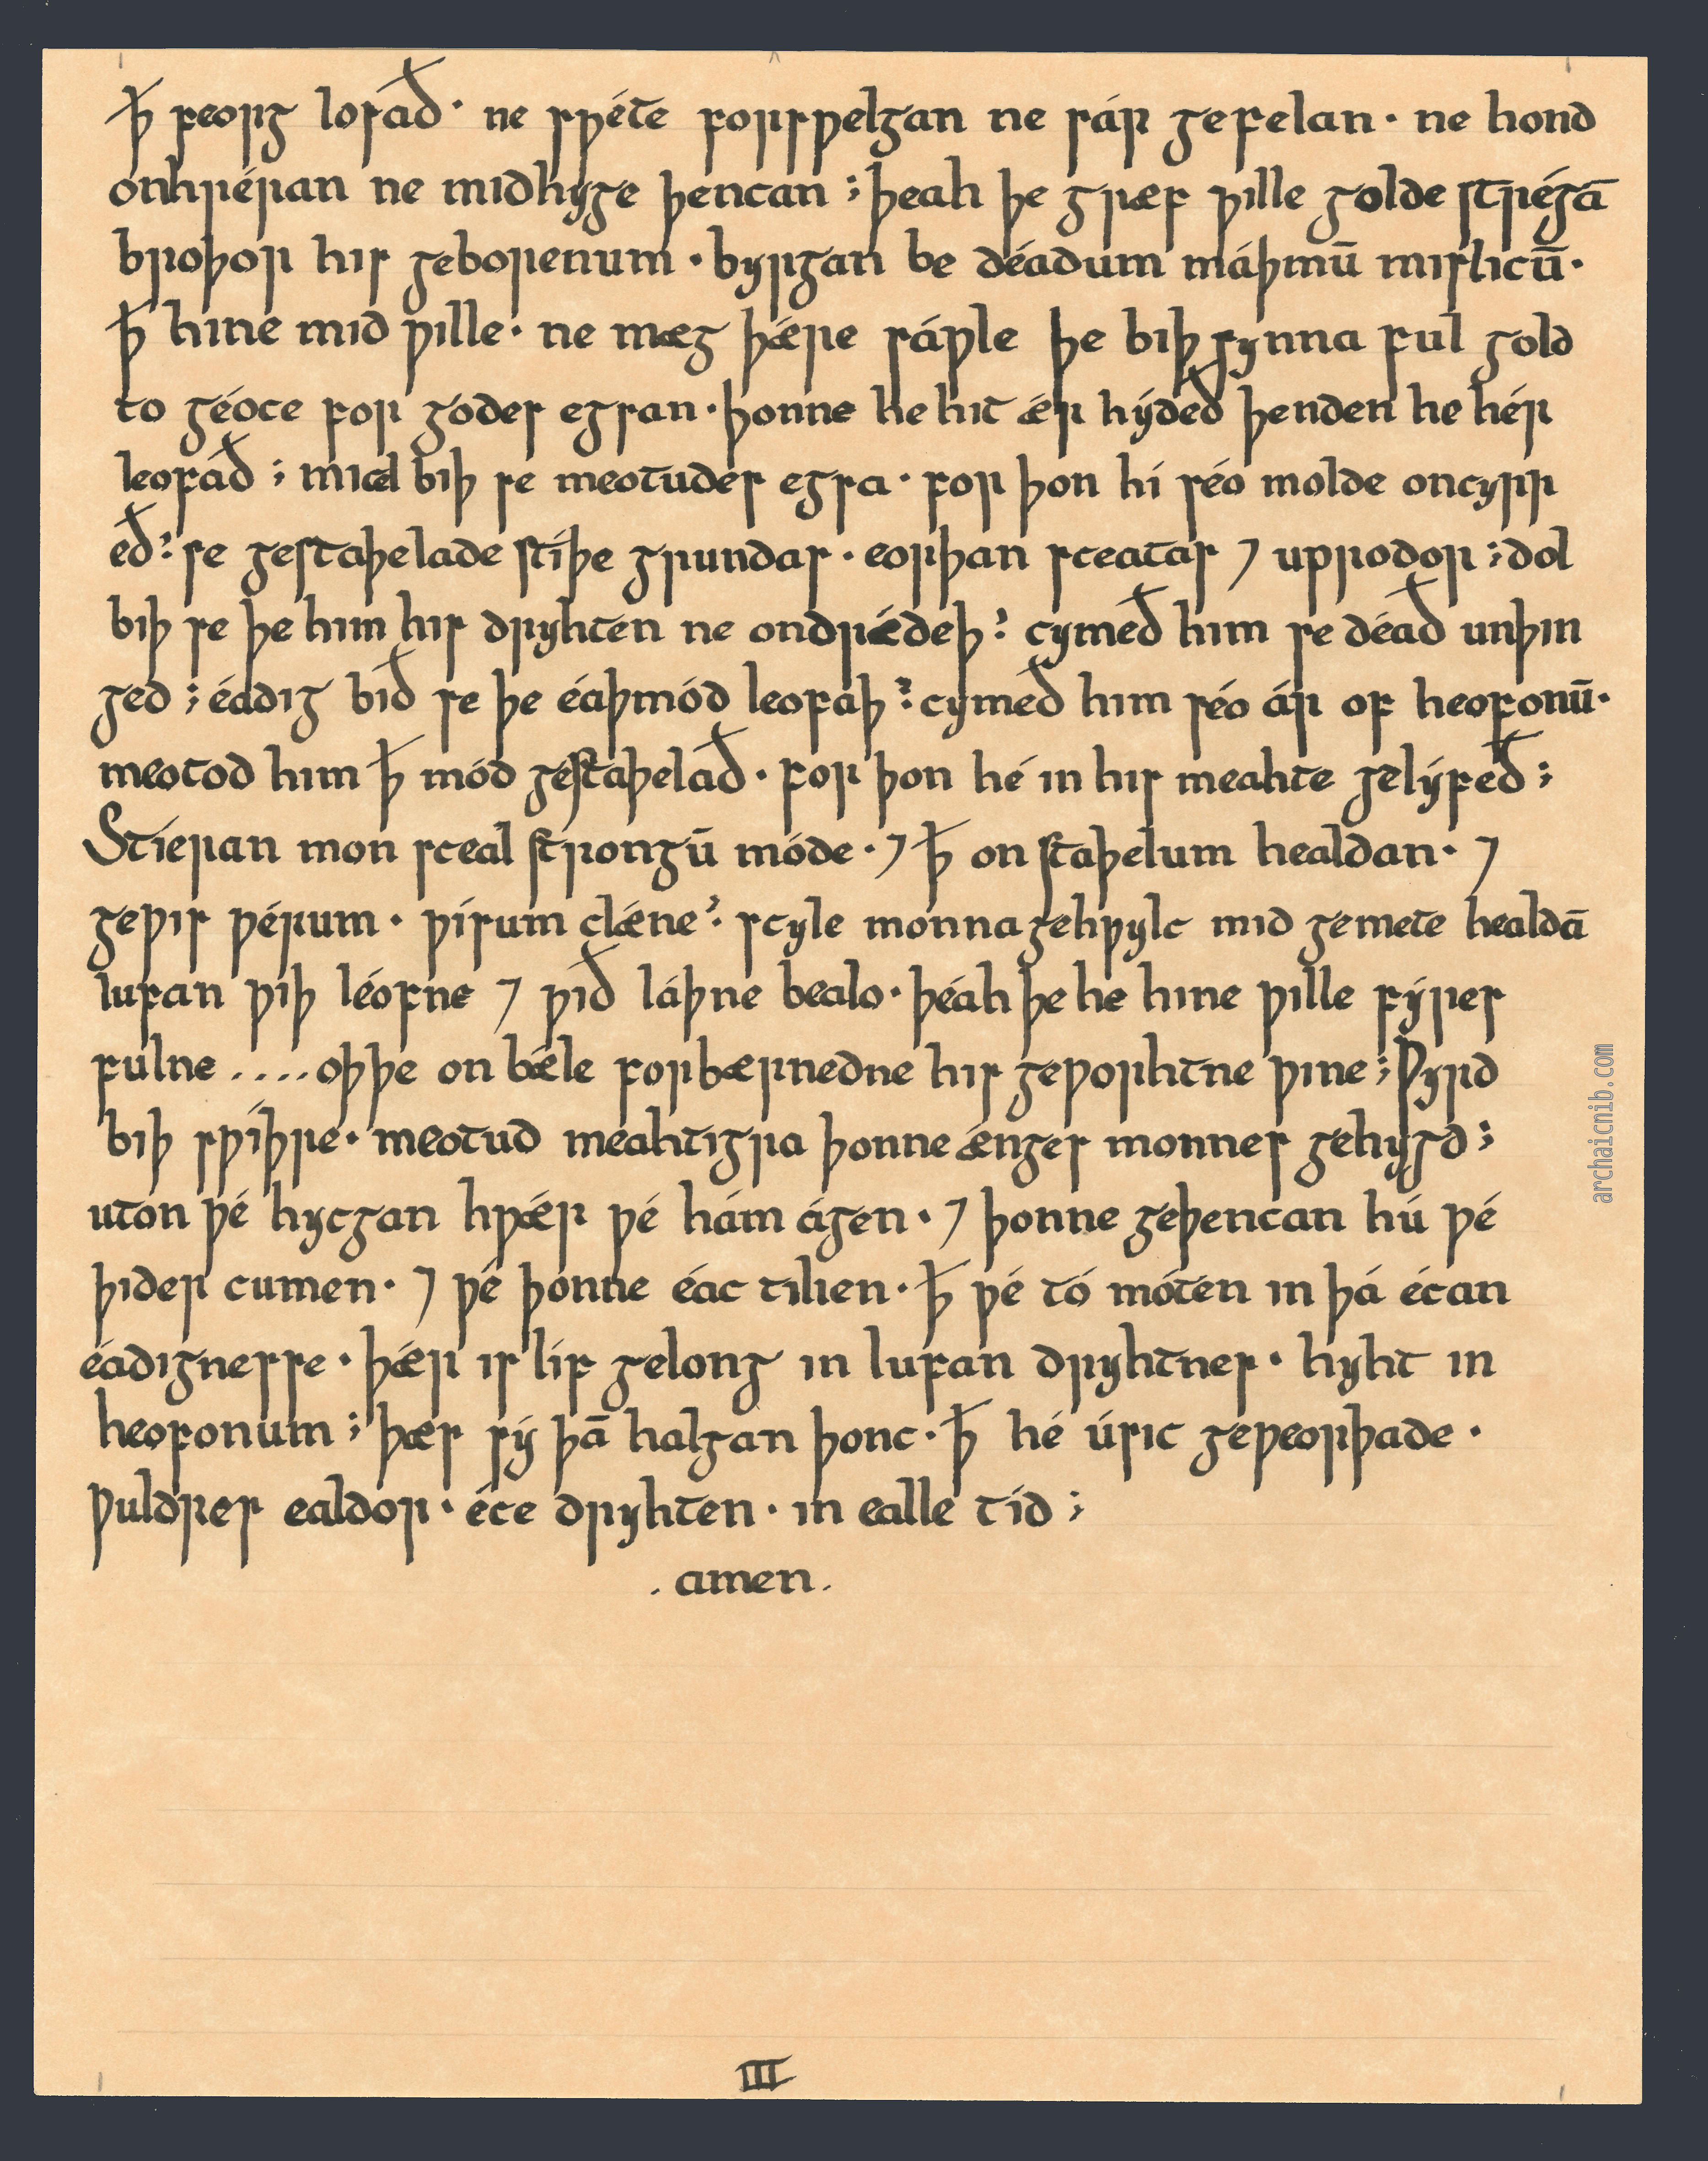 ꝥ feorg losað· ne swéte forswelgan ne sár gefelan· ne hond
onhréran ne midhyge þencan ; þeah þe græf wille golde strégā
broþor his geborenum · byrgan be déadum máþmū mislicū·
ꝥ hine mid wille· ne mæg þǽre sáwle þe biþ synna ful gold
to géoce for godes egsan · þonne he hit ǽr hýdeð þenden he hér
leofáð ; micel biþ se meotudes egsa · for þon hí séo molde oncyrr
eð : se gestaþelade stíþe grundas · eorþan sceatas ⁊ uprodor ; dol
biþ se þe him his dryhten ne ondrǽdeþ : cymeð him se déað unþin
ged ; éadig bið se þe éaþmód leofaþ : cymeð him séo ár of heofonū·
meotod him ꝥ mód gestaþelað · for þon hé in his meahte gelýfeð ;
Stíeran mon sceal strongū móde · ⁊ ꝥ on staþelum healdan · ⁊
gewis wérum · wísum clǽne : scyle monna gehwylc mid gemete healdā
lufan wiþ léofne ⁊ wið láþne bealo · þéah þe he hine wille fýres
fulne .... oþþe on bǽle forbærnedne his geworhtne wine ; Wyrd
biþ swíþre · meotud meahtigra þonne ænges monnes gehygd ;
uton wé hycgan hwǽr wé hám ágen · ⁊ þonne geþencan hú wé
þider cumen · ⁊ wé þonne éac tilien · ꝥ wé tó móten in þá écan
éadignesse · þǽr is líf gelong in lufan dryhtnes · hyht in
heofonum ; þæs sý þā halgan þonc · ꝥ hé úsic geweorþade ·
wuldres ealdor · éce dryhten · in ealle tíd ;
. amen .
III
archaicnib.com